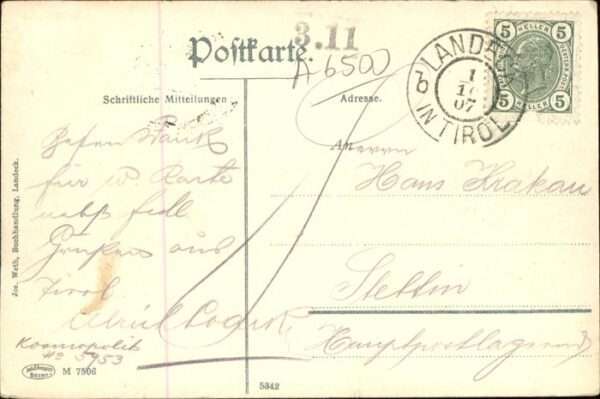 3.11
Postkarte.
A 6500
LANDECK
IN TIROL
1
10
07
5 HELLER 5
5 HELLER 5
Schriftliche Mitteilungen
Adresse.
Besten Dank
für w. Karte
nebst frdl.
Grüßen aus
Tirol
Kosmopolit
No 5953
An Herrn
Hans Krakau
Stettin
Hauptpostlagernd
Jos. Weth, Buchhandlung, Landeck.
M 7506
5342